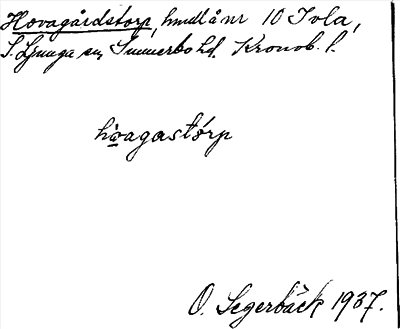 Hovagårdstorp, hmdl å nr 10 Ivla,
S. Ljunga sn, Sunnerbo hd. Kronob. l.
hovagastórp
O. Segerbäck 1937.